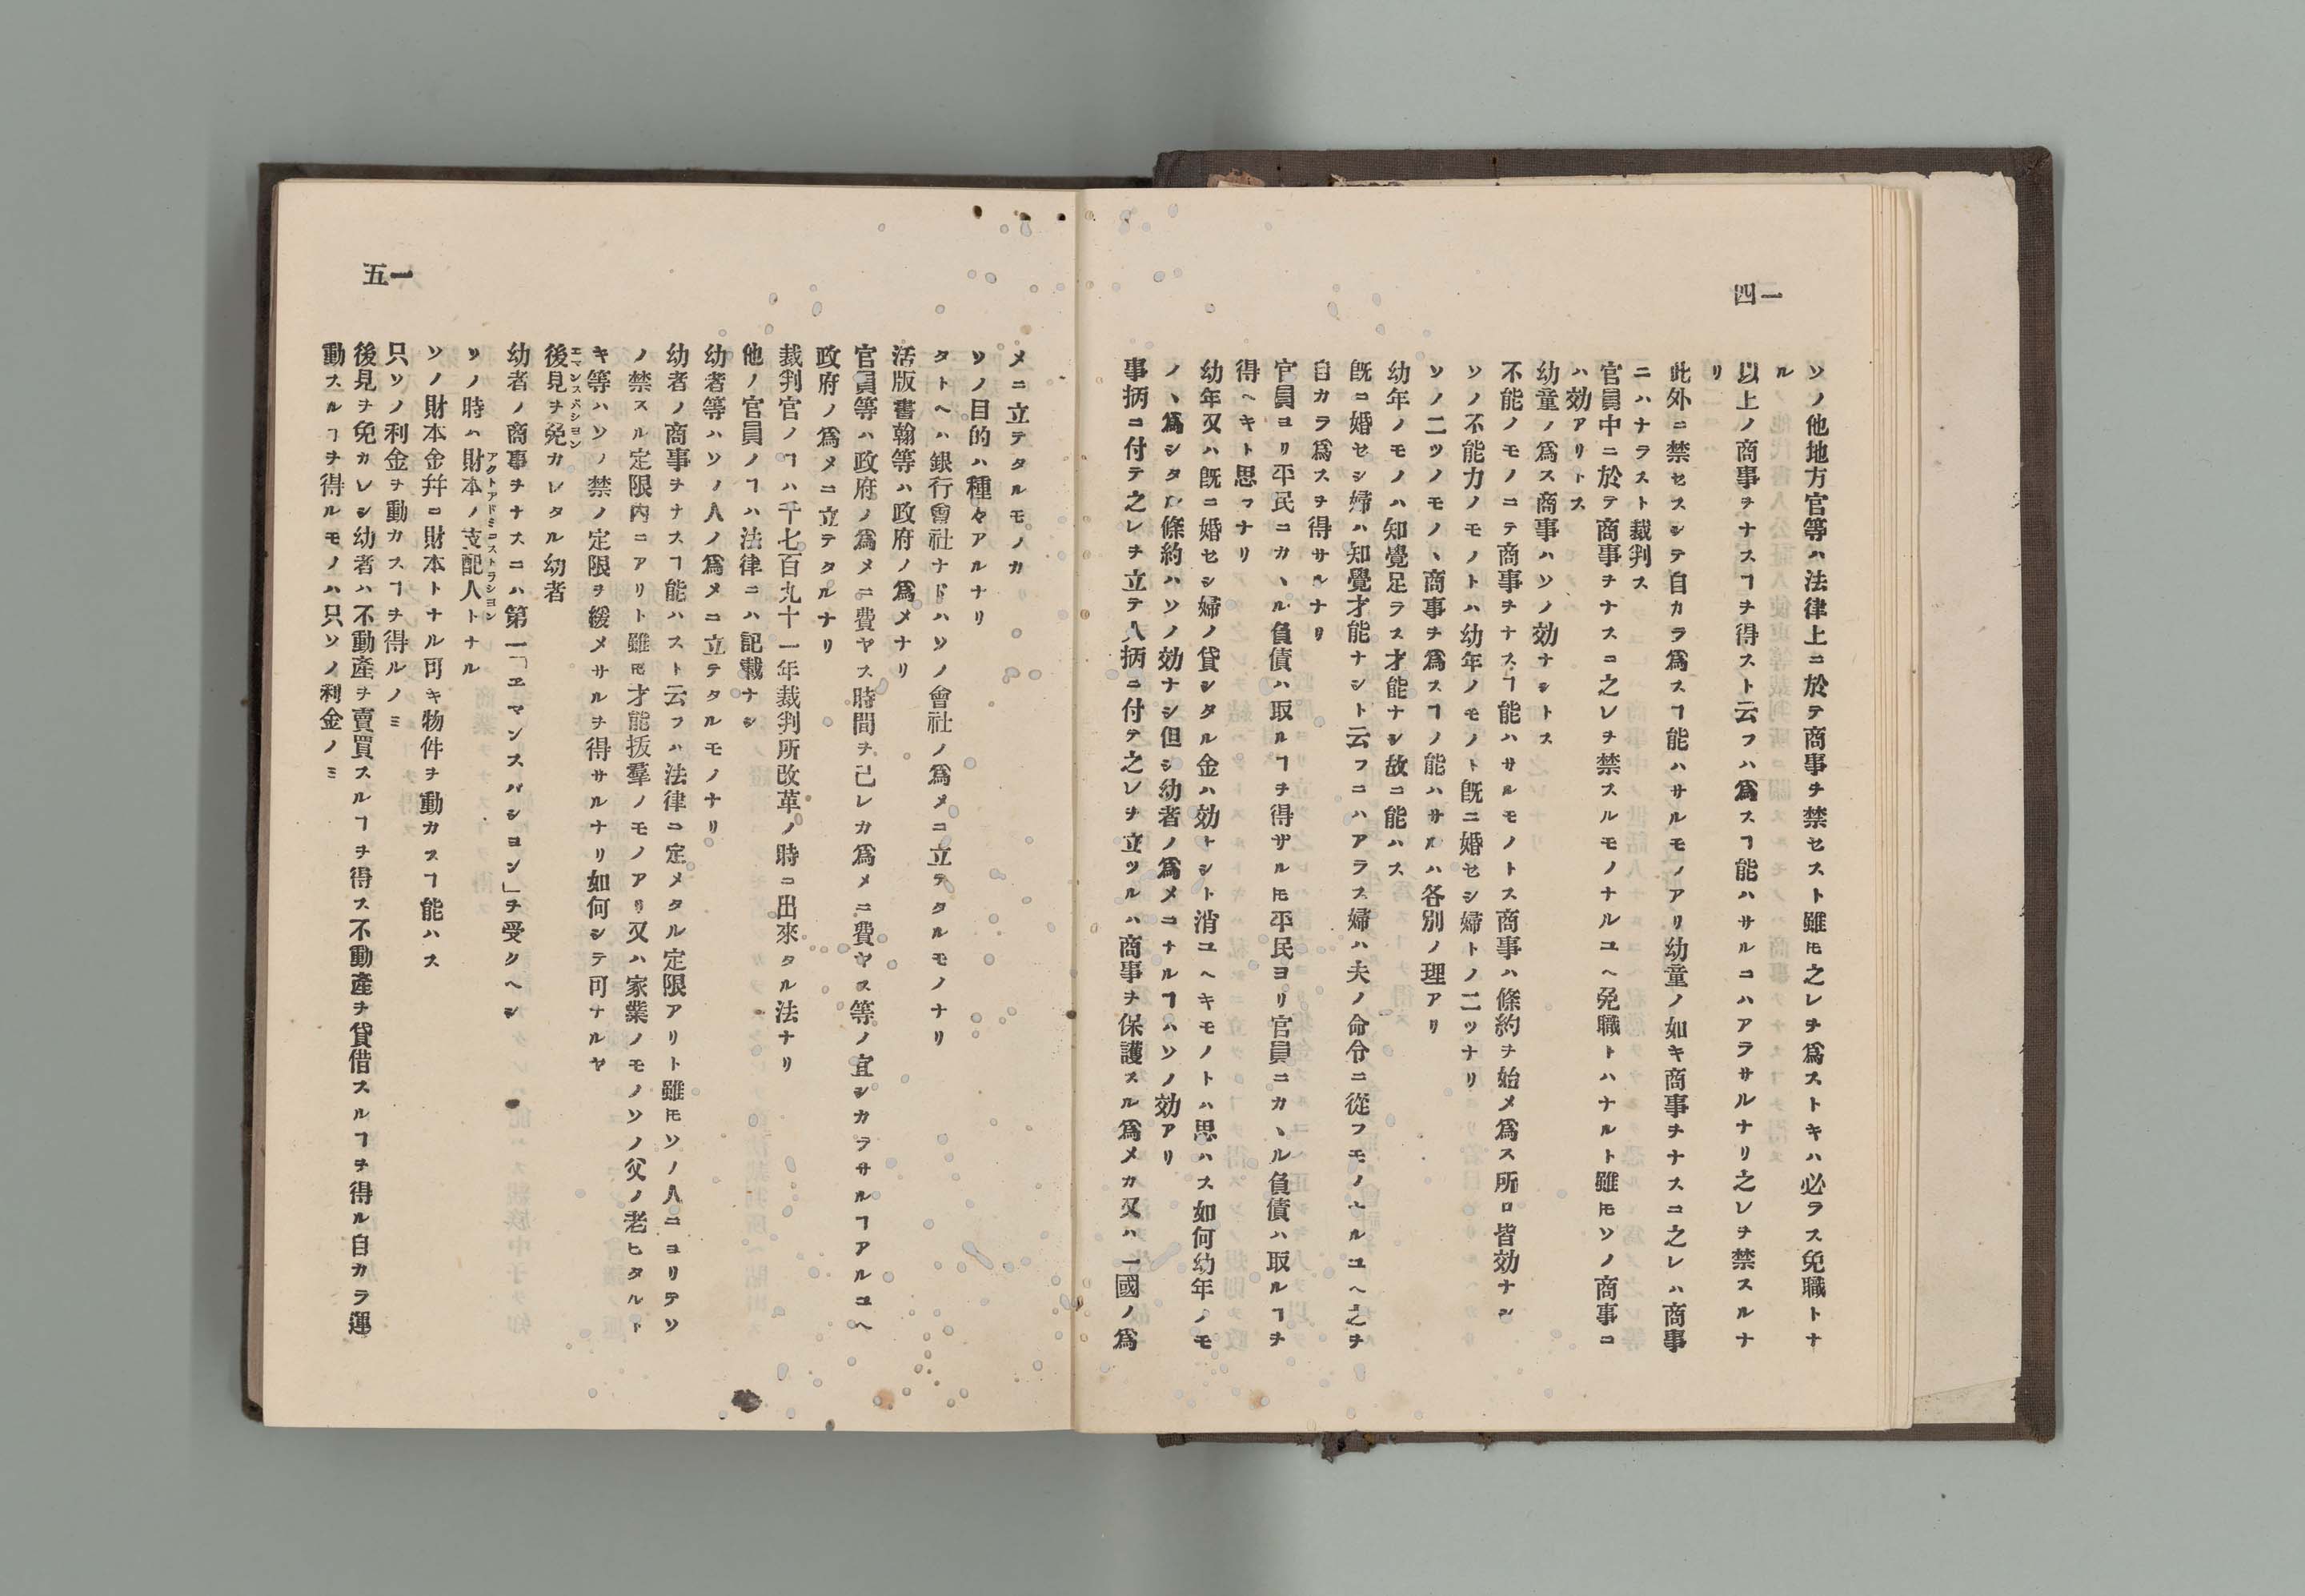 一四
ソノ他地方官等ハ法律上ニ於テ商事ヲ禁セスト雖𪜈之レヲ爲ストキハ必ラス免職トナ
ル
以上ノ商事ヲナスヿヲ得スト云フハ爲スヿ能ハサルニハアラサルナリ之レヲ禁スルナ
リ
此外ニ禁セスシテ自カラ爲スヿ能ハサルモノアリ幼童ノ如キ商事ヲナスニ之レハ商事
ニハナラスト裁判ス
官員中ニ於テ商事ヲナスニ之レヲ禁スルモノナルユヘ免職トハナルト雖𪜈ソノ商事ニ
ハ効アリトス
幼童ノ爲ス商事ハソノ効ナシトス
不能ノモノニテ商事ヲナスヿ能ハサルモノトス商事ハ條約ヲ始メ爲ス所ロ皆効ナシ
ソノ不能力ノモノトハ幼年ノモノト既ニ婚セシ婦トノ二ツナリ
ソノ二ツノモノヽ商事ヲ爲スヿノ能ハサルハ各別ノ理アリ
幼年ノモノハ知覺足ラス才能ナシ故ニ能ハス
既ニ婚セシ婦ハ知覺才能ナシト云フニハアラス婦ハ夫ノ命令ニ從フモノナルユヘ之ヲ
自カラ爲スヲ得サルナリ
官員ヨリ平民ニカヽル負債ハ取ルヿヲ得ザル𪜈平民ヨリ官員ニカヽル負債ハ取ルヿヲ
得ヘキト思フナリ
幼年又ハ既ニ婚セシ婦ノ貸シタル金ハ効トシト消ユヘキモノトハ思ハス如何幼年ノモ
ノヽ爲シタル條約ハソノ効ナシ但シ幼者ノ爲メニナルヿハソノ効アリ
事柄ニ付テ之レヲ立テ人柄ニ付テ之レヲ立ツルハ商事ヲ保護スル爲メカ又ハ一國ノ爲
一五
メニ立テタルモノカ
ソノ目的ハ種々アルナリ
タトヘハ銀行會社ナドハソノ會社ノ爲メニ立テタルモノナリ
活版書翰等ハ政府ノ爲メナリ
官員等ハ政府ノ爲メニ費ヤス時間ヲ己レカ爲メニ費ヤス等ノ宜シカラサルヿアルユヘ
政府ノ爲メニ立テタルナリ
裁判官ノヿハ千七百九十一年裁判所改革ノ時ニ出來タル法ナリ
他ノ官員ノヿハ法律ニハ記載ナシ
幼者等ハソノ人ノ爲メニ立テタルモノナリ
幼者ノ商事ヲナスヿ能ハスト云フハ法律ニ定メタル定限アリト雖𪜈ソノ人ニヨリテソ
ノ禁スル定限内ニアリト雖𪜈才能拔羣ノモノアリ又ハ家業ノモノソノ父ノ老ヒタルト
キ等ハソノ禁ノ定限ヲ緩メサルヲ得サルナリ如何シテ可ナルヤ
後見ヲ免カレタル幼者
エマンスパション
幼者ノ商事ヲナスニハ第一「エマンスパシヨン」ヲ受クヘシ
ソノ時ハ財本ノ支配人トナル
アクトアドミニストラション
ソノ財本金幷ニ財本トナル可キ物件ヲ動カスヿ能ハス
只ソノ利金ヲ動カスヿヲ得ルノミ
後見ヲ免カレシ幼者ハ不動產ヲ賣買スルヿヲ得ス不動產ヲ貸借スルヿヲ得ル自カラ運
動スルヿヲ得ルモノハ只ソノ利金ノミ